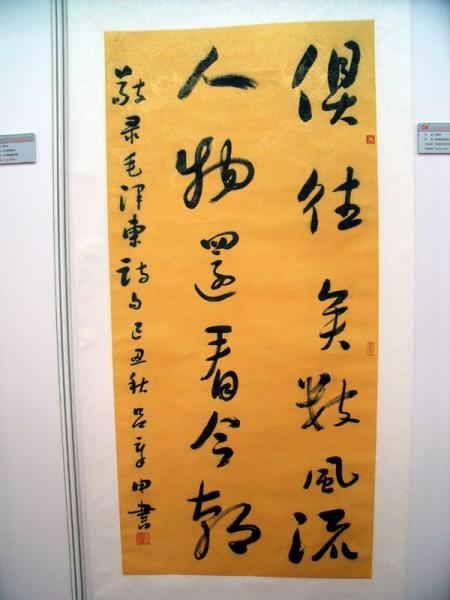 俱往矣数风流
人物還看今朝
敬录毛泽東诗句己丑秋吕章申書